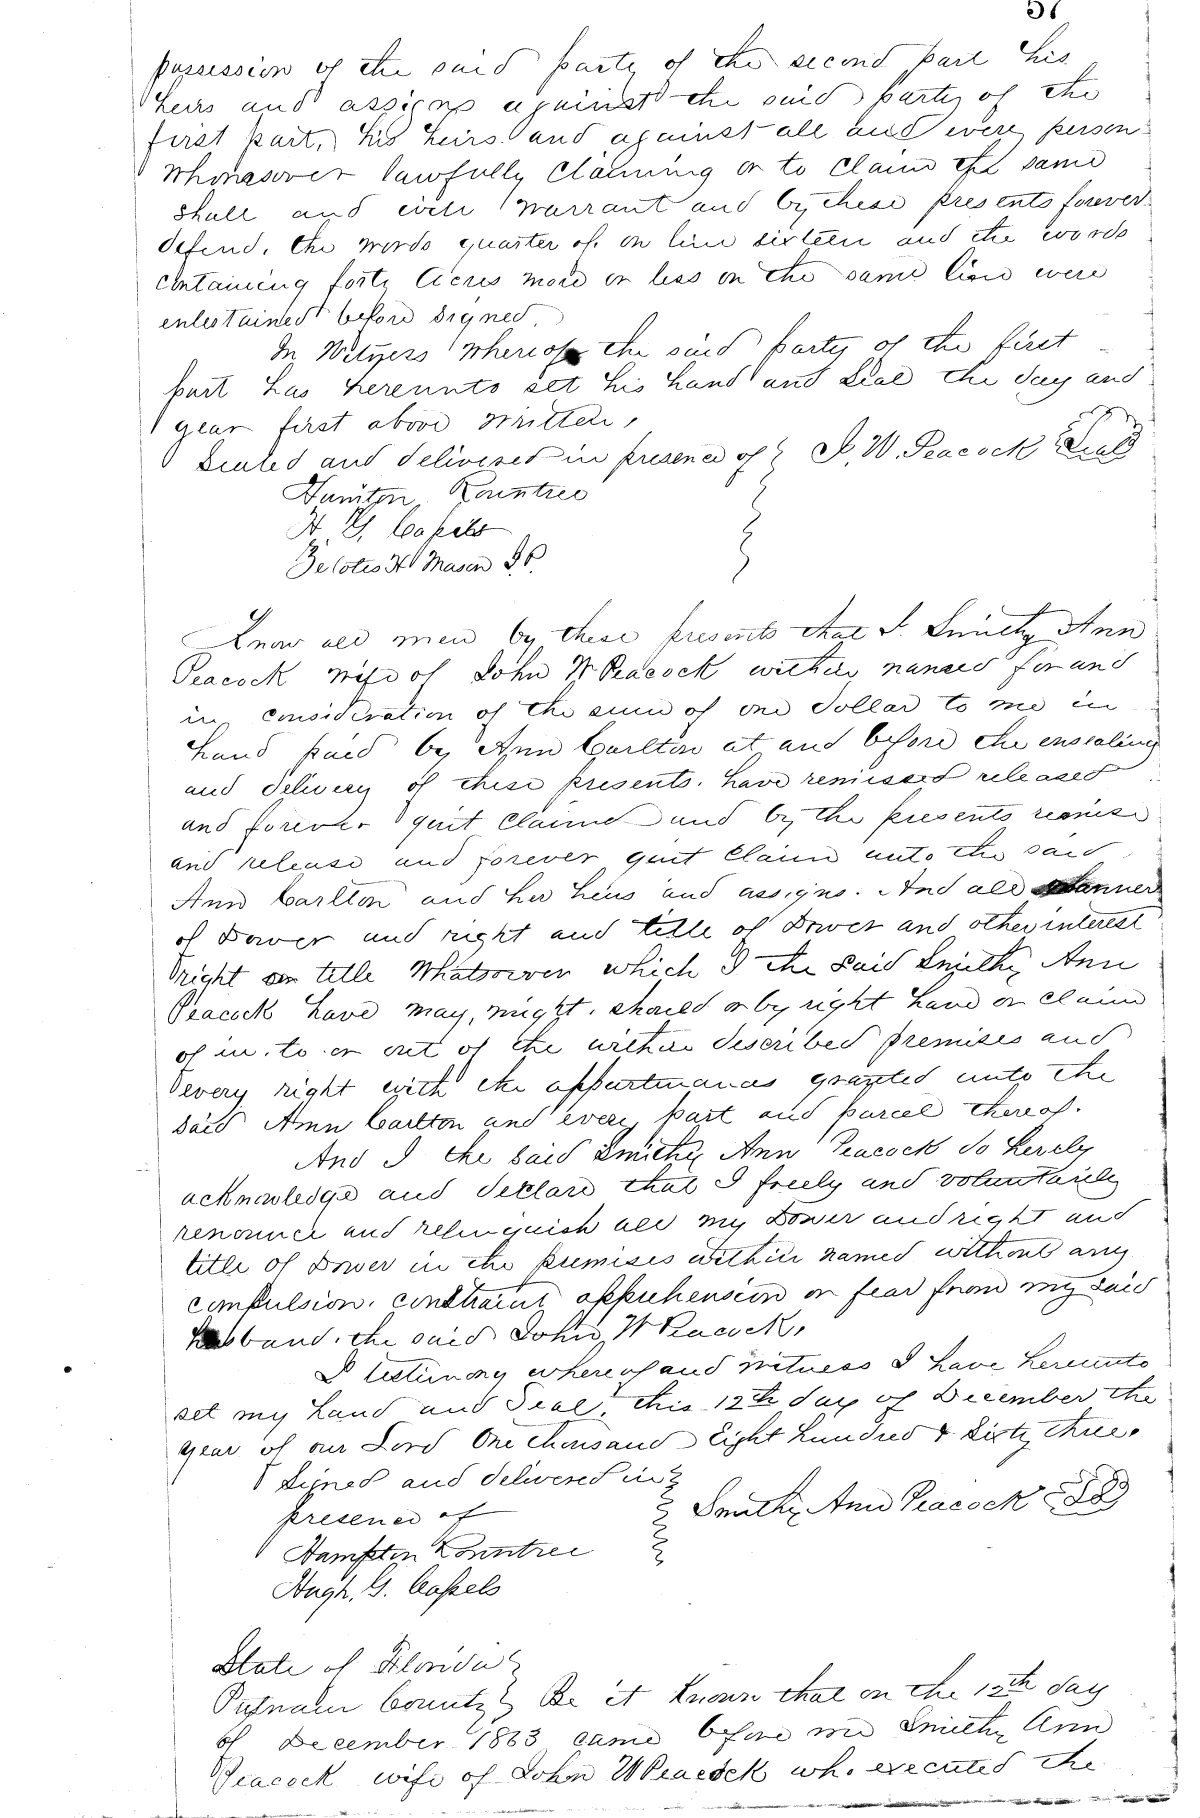 possession of the said party of the second part his
heirs and assigns against the said party of the
first part, his heirs and against all and every person
Whomsoever lawfully Claiming or to Claim the same
shall and will Warrant and by these presents forever
defend. the words quarter of. on line sixteen and the words
containing forty Acres more or less on the same line were
entestained before signed.
In Witness Whereof the said party of the first
part has hereunto set his hand and Seal the day and
year first above Written,
Sealed and delivered in presence of J. W. Peacock Seal
Hamton Rountree
H. G. Cassels
Zelotes H Mason J.P.
Know all men by these presents that I. Smithy Ann
Peacock Wife of John W Peacock within named for and
in consideration of the sum of one dollar to me in
hand paid by Ann Carlton at and before the ensealing
and delivery of these presents. have remissed released
and forever quit Claimed and by the presents remise
and release and forever quit Claim unto the said
Ann Carlton and her heirs and assigns. And all Manner
of Dower and right and title of Dower and other interest
right or title Whatsoever which I the said Smithy Ann
Peacock have may, might. should or by right have or claim
of in. to. or out of the within described premises and
every right with the appurtenances granted unto the
said Ann Carlton and every part and parcel thereof.
And I the said Smithy Ann Peacock do hereby
acknowledge and declare that I freely and voluntarily
renounce and relinquish all my Dower and right and
title of Dower in the premises within named without any
compulsion. constraint apprehension or fear from my said
husband. the said John W Peacock.
I testimony whereof and witness I have hereunto
set my hand and Seal. this 12th day of December the
year of our Lord One thousand Eight hundred & Sixty three.
Signed and delivered in
presence of Smithy Ann Peacock
Hampton Rountree
Hugh. G. Cassels
State of Florida
Putnam County Be it Known that on the 12th day
of December 1863 came before me Smithy Ann
Peacock wife of John W Peacock who executed the